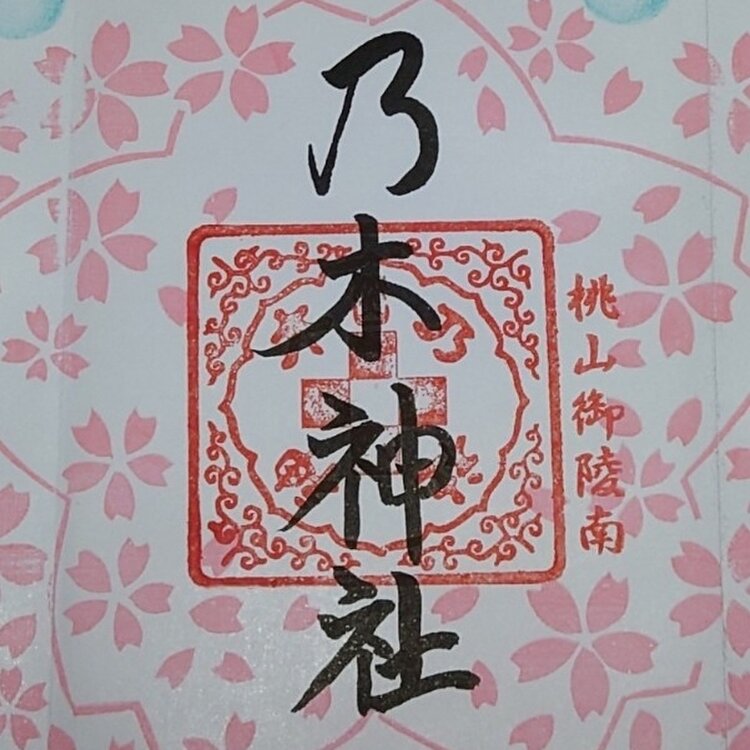 桃山御陵南
乃木神社